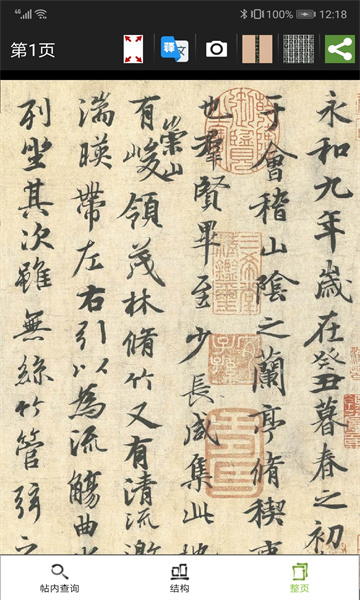 100% 12:18
第1页
释文
永和九年歲在癸丑暮春之初
于會稽山陰之蘭亭脩稧事
也羣賢畢至少長咸集此地
有崇山峻領茂林脩竹又有清流激
湍暎帶左右引以為流觴曲水
列坐其次雖無絲竹管弦之
帖内查询
结构
整页